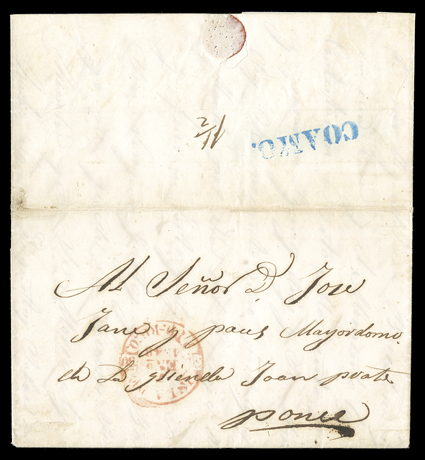 COAMO.
1/2
Al Señor D. Jose
Jane y paus Mayordomo
de La Hsienda Joan prats
ponce